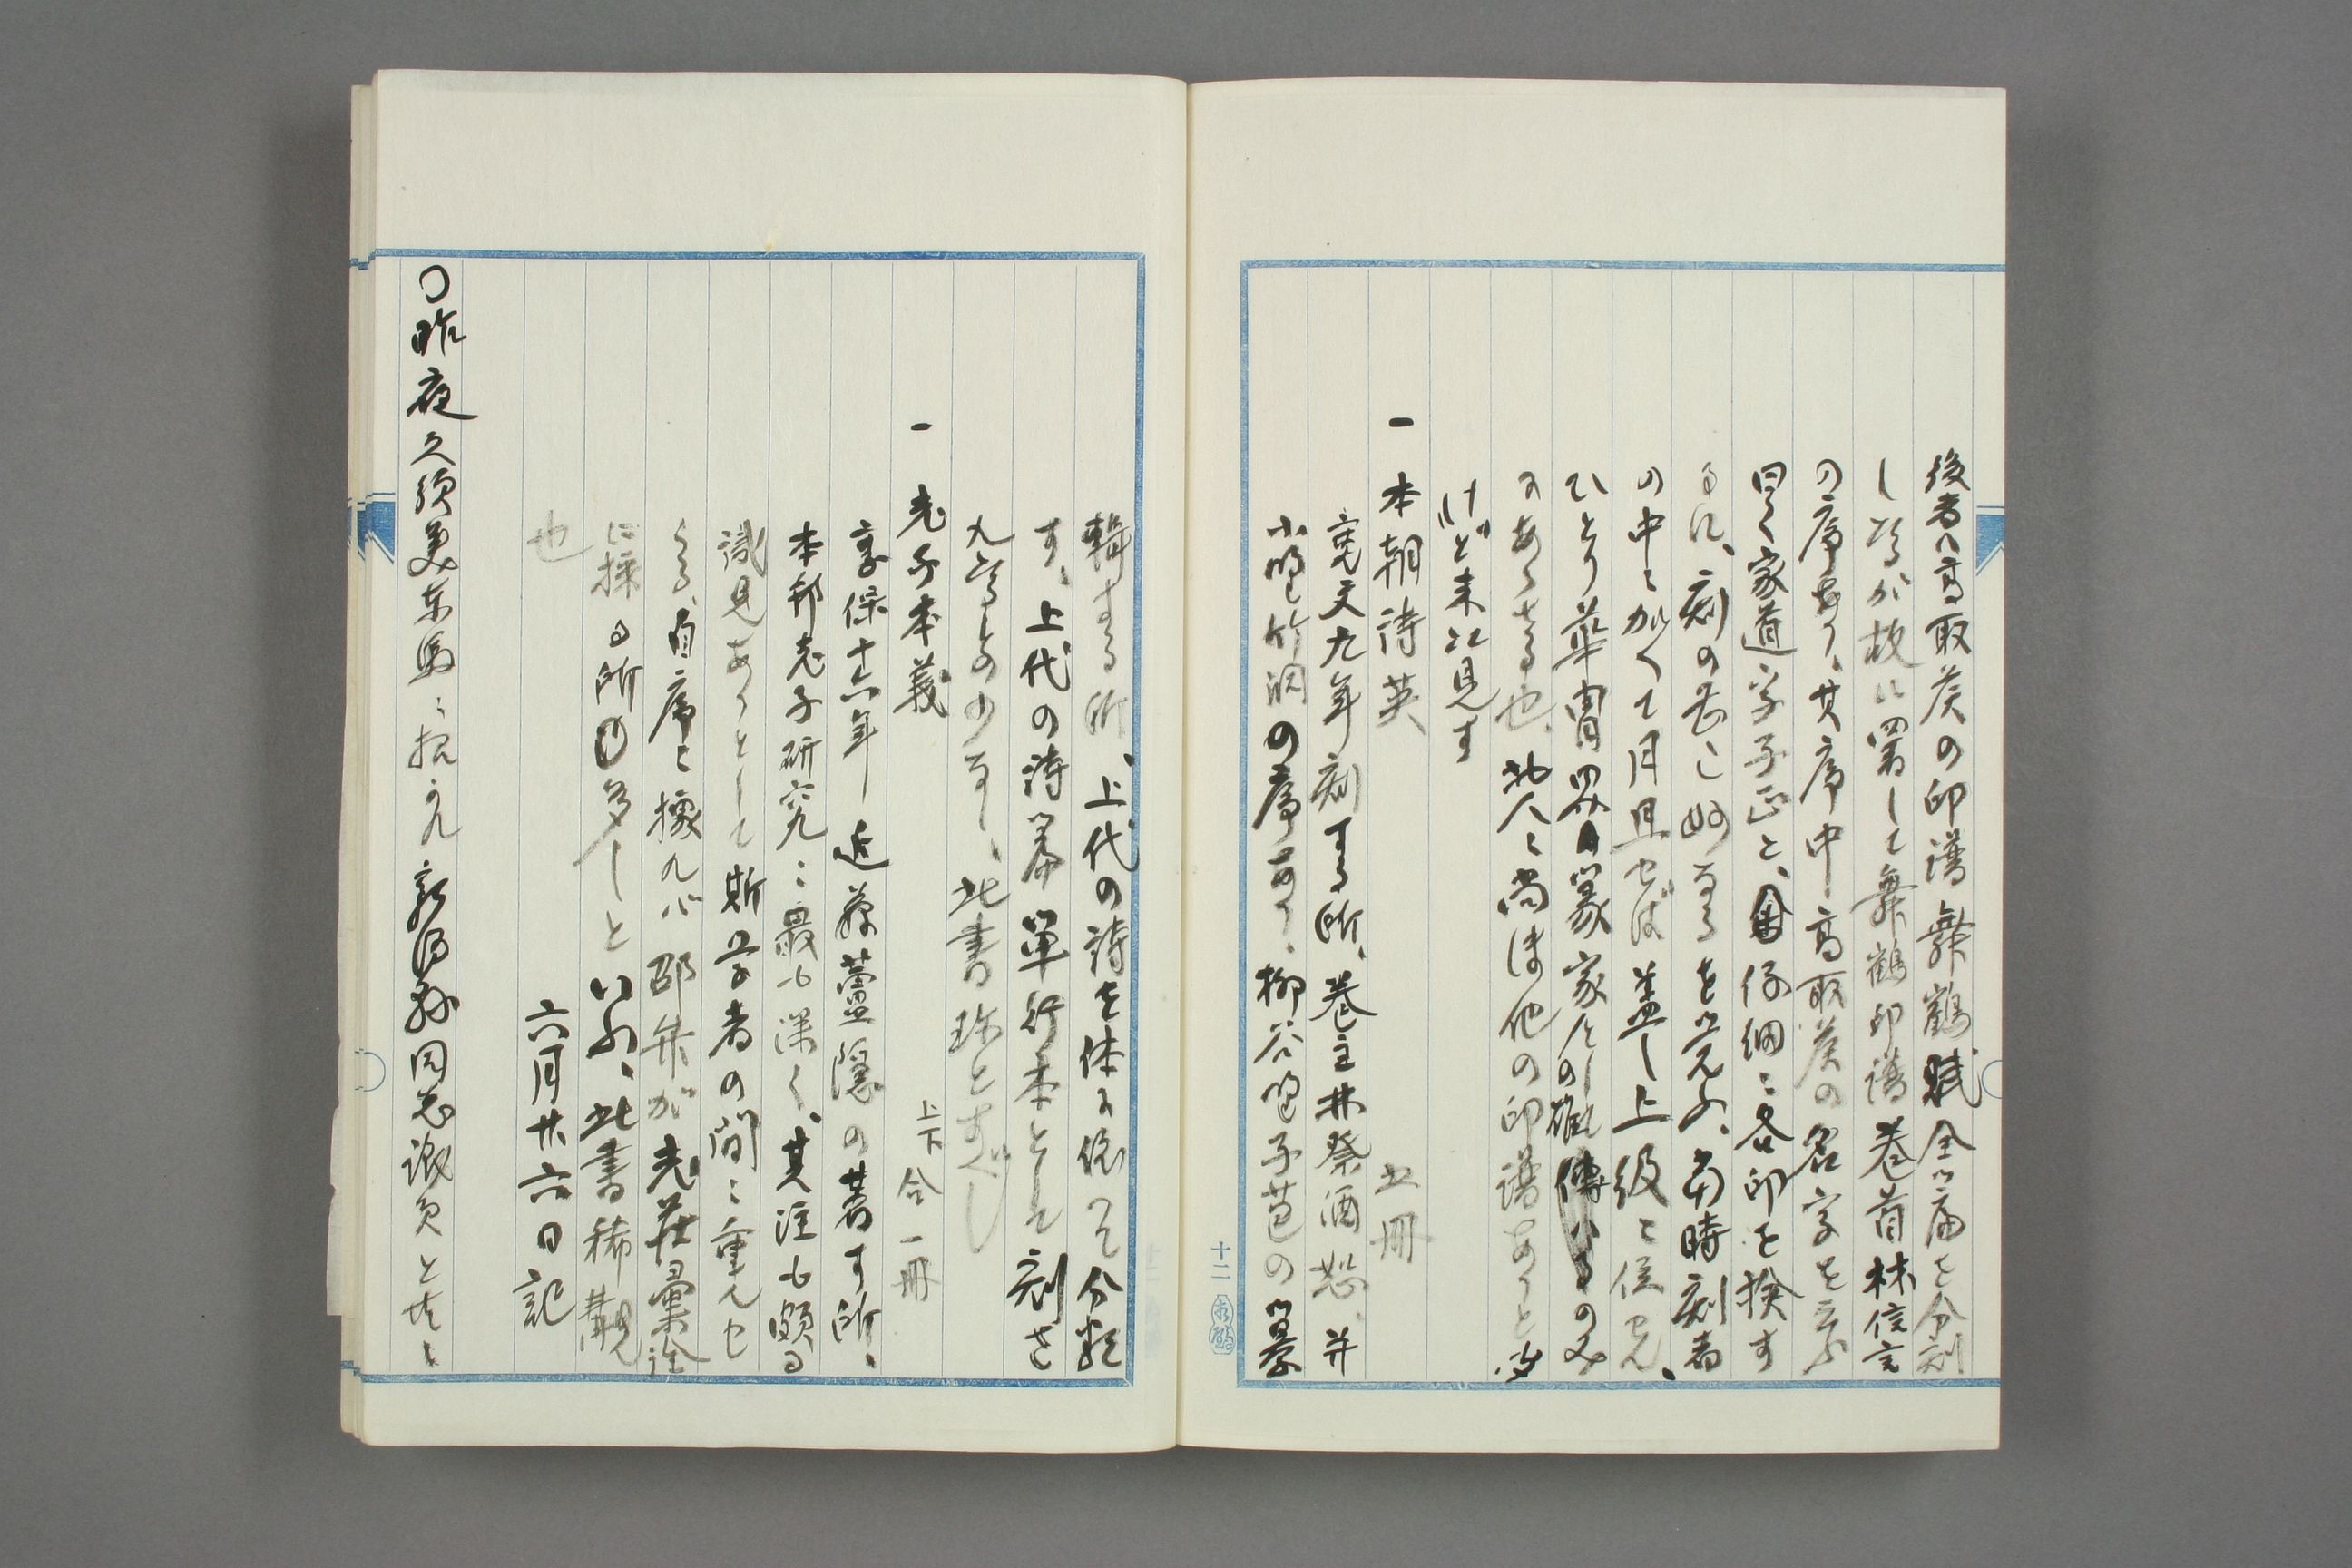 後者ハ高取侯の印譜舞鶴賦全篇を分刻
しあるが故に署して舞鶴印譜巻首林信言
の序あり、其序中高取侯の名字を云ふ
曰く家道字子正と、仔細ニ各印を検す
るに、刻の甚こ妙なるを覚ふ、当時刻者
の中ニかくて月旦せば蓋し上級ニ位せん、
ひとり華冑界篆家としの み
にあらざる也、此人ニ尚ほ他の印譜ありと
けど未に見す
一 本朝詩英 五冊
寛文九年刻する所、巻主林祭酒恕、并
小 竹洞の序あり、柳谷 子苞の纂
輯する所、上代の詩を体に依つて分類
す、上代の詩篇単行本として刻さ
れ もの少なし、此書珍とすべし
一 老子本義 上下合一冊
享保十六年 近藤蘆隠の著す所、
本邦老子研究ニ最も深く、其注も頗る
識見ありとして斯学者の間ニ重んセ
らる、自序ニ據れバ邵弁が老荘彙詮
に採る所多しといふ、此書稀覯
也
六月廿六日記
○昨夜久須美東馬ニ招かれ 同志